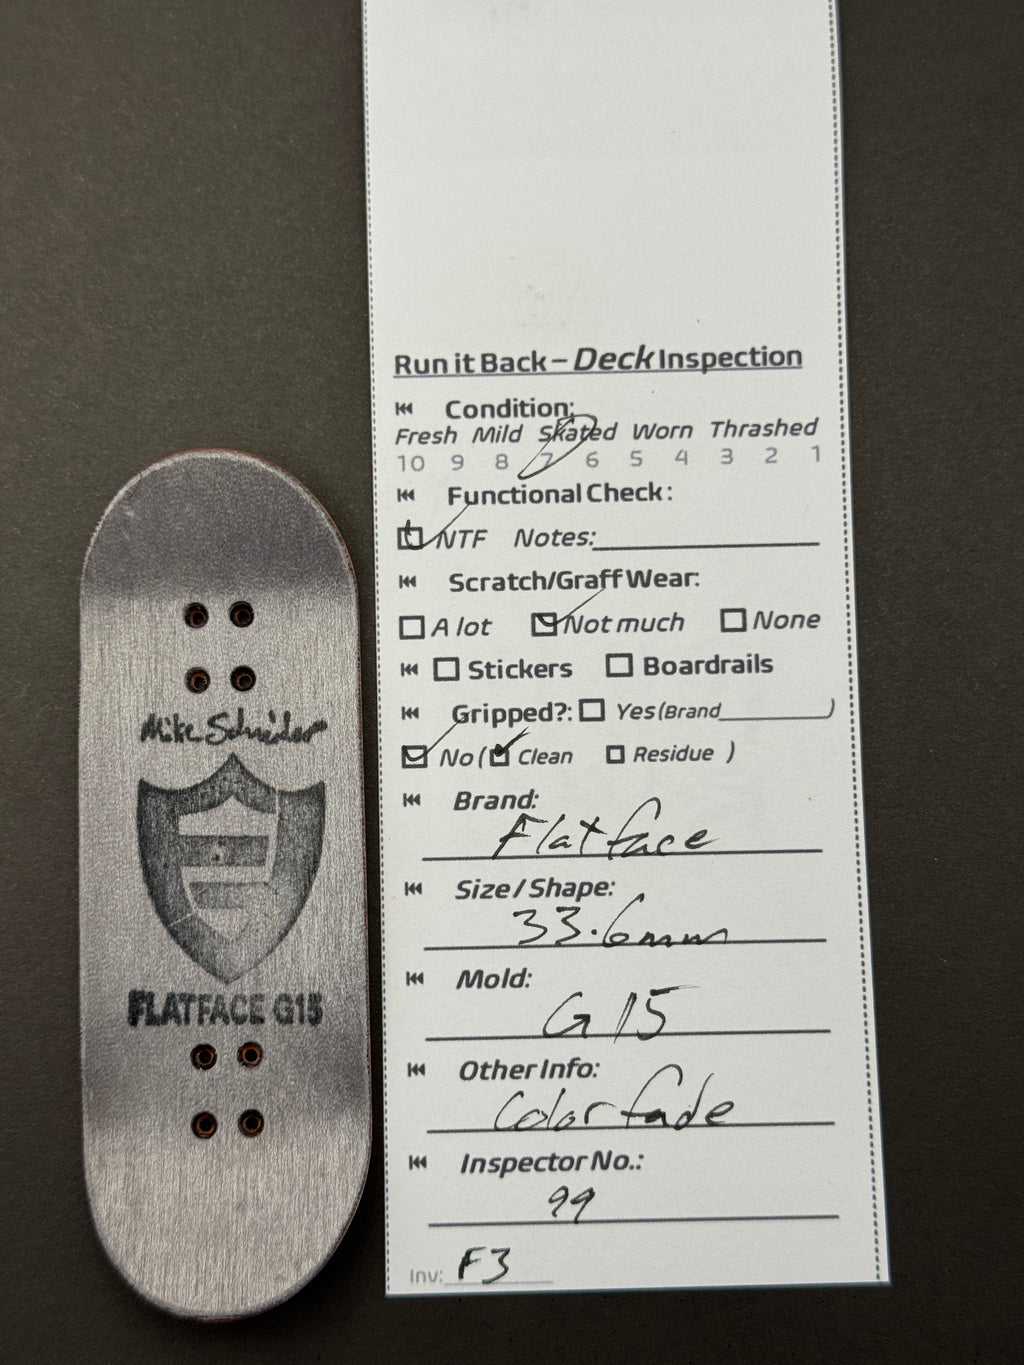 Run it Back – Deck Inspection
Condition:
Fresh Mild Skated Worn Thrashed
10 9 8 7 6 5 4 3 2 1
Functional Check:
NTF Notes:
Scratch/Graff Wear:
A lot Not much None
Stickers Boardrails
Gripped?: Yes (Brand )
No ( Clean Residue )
Brand:
Flatface
Size / Shape:
33.6mm
Mold:
G15
Other Info:
Color fade
Inspector No.:
99
Inv: F3
Mike Schneider
FLATFACE G15